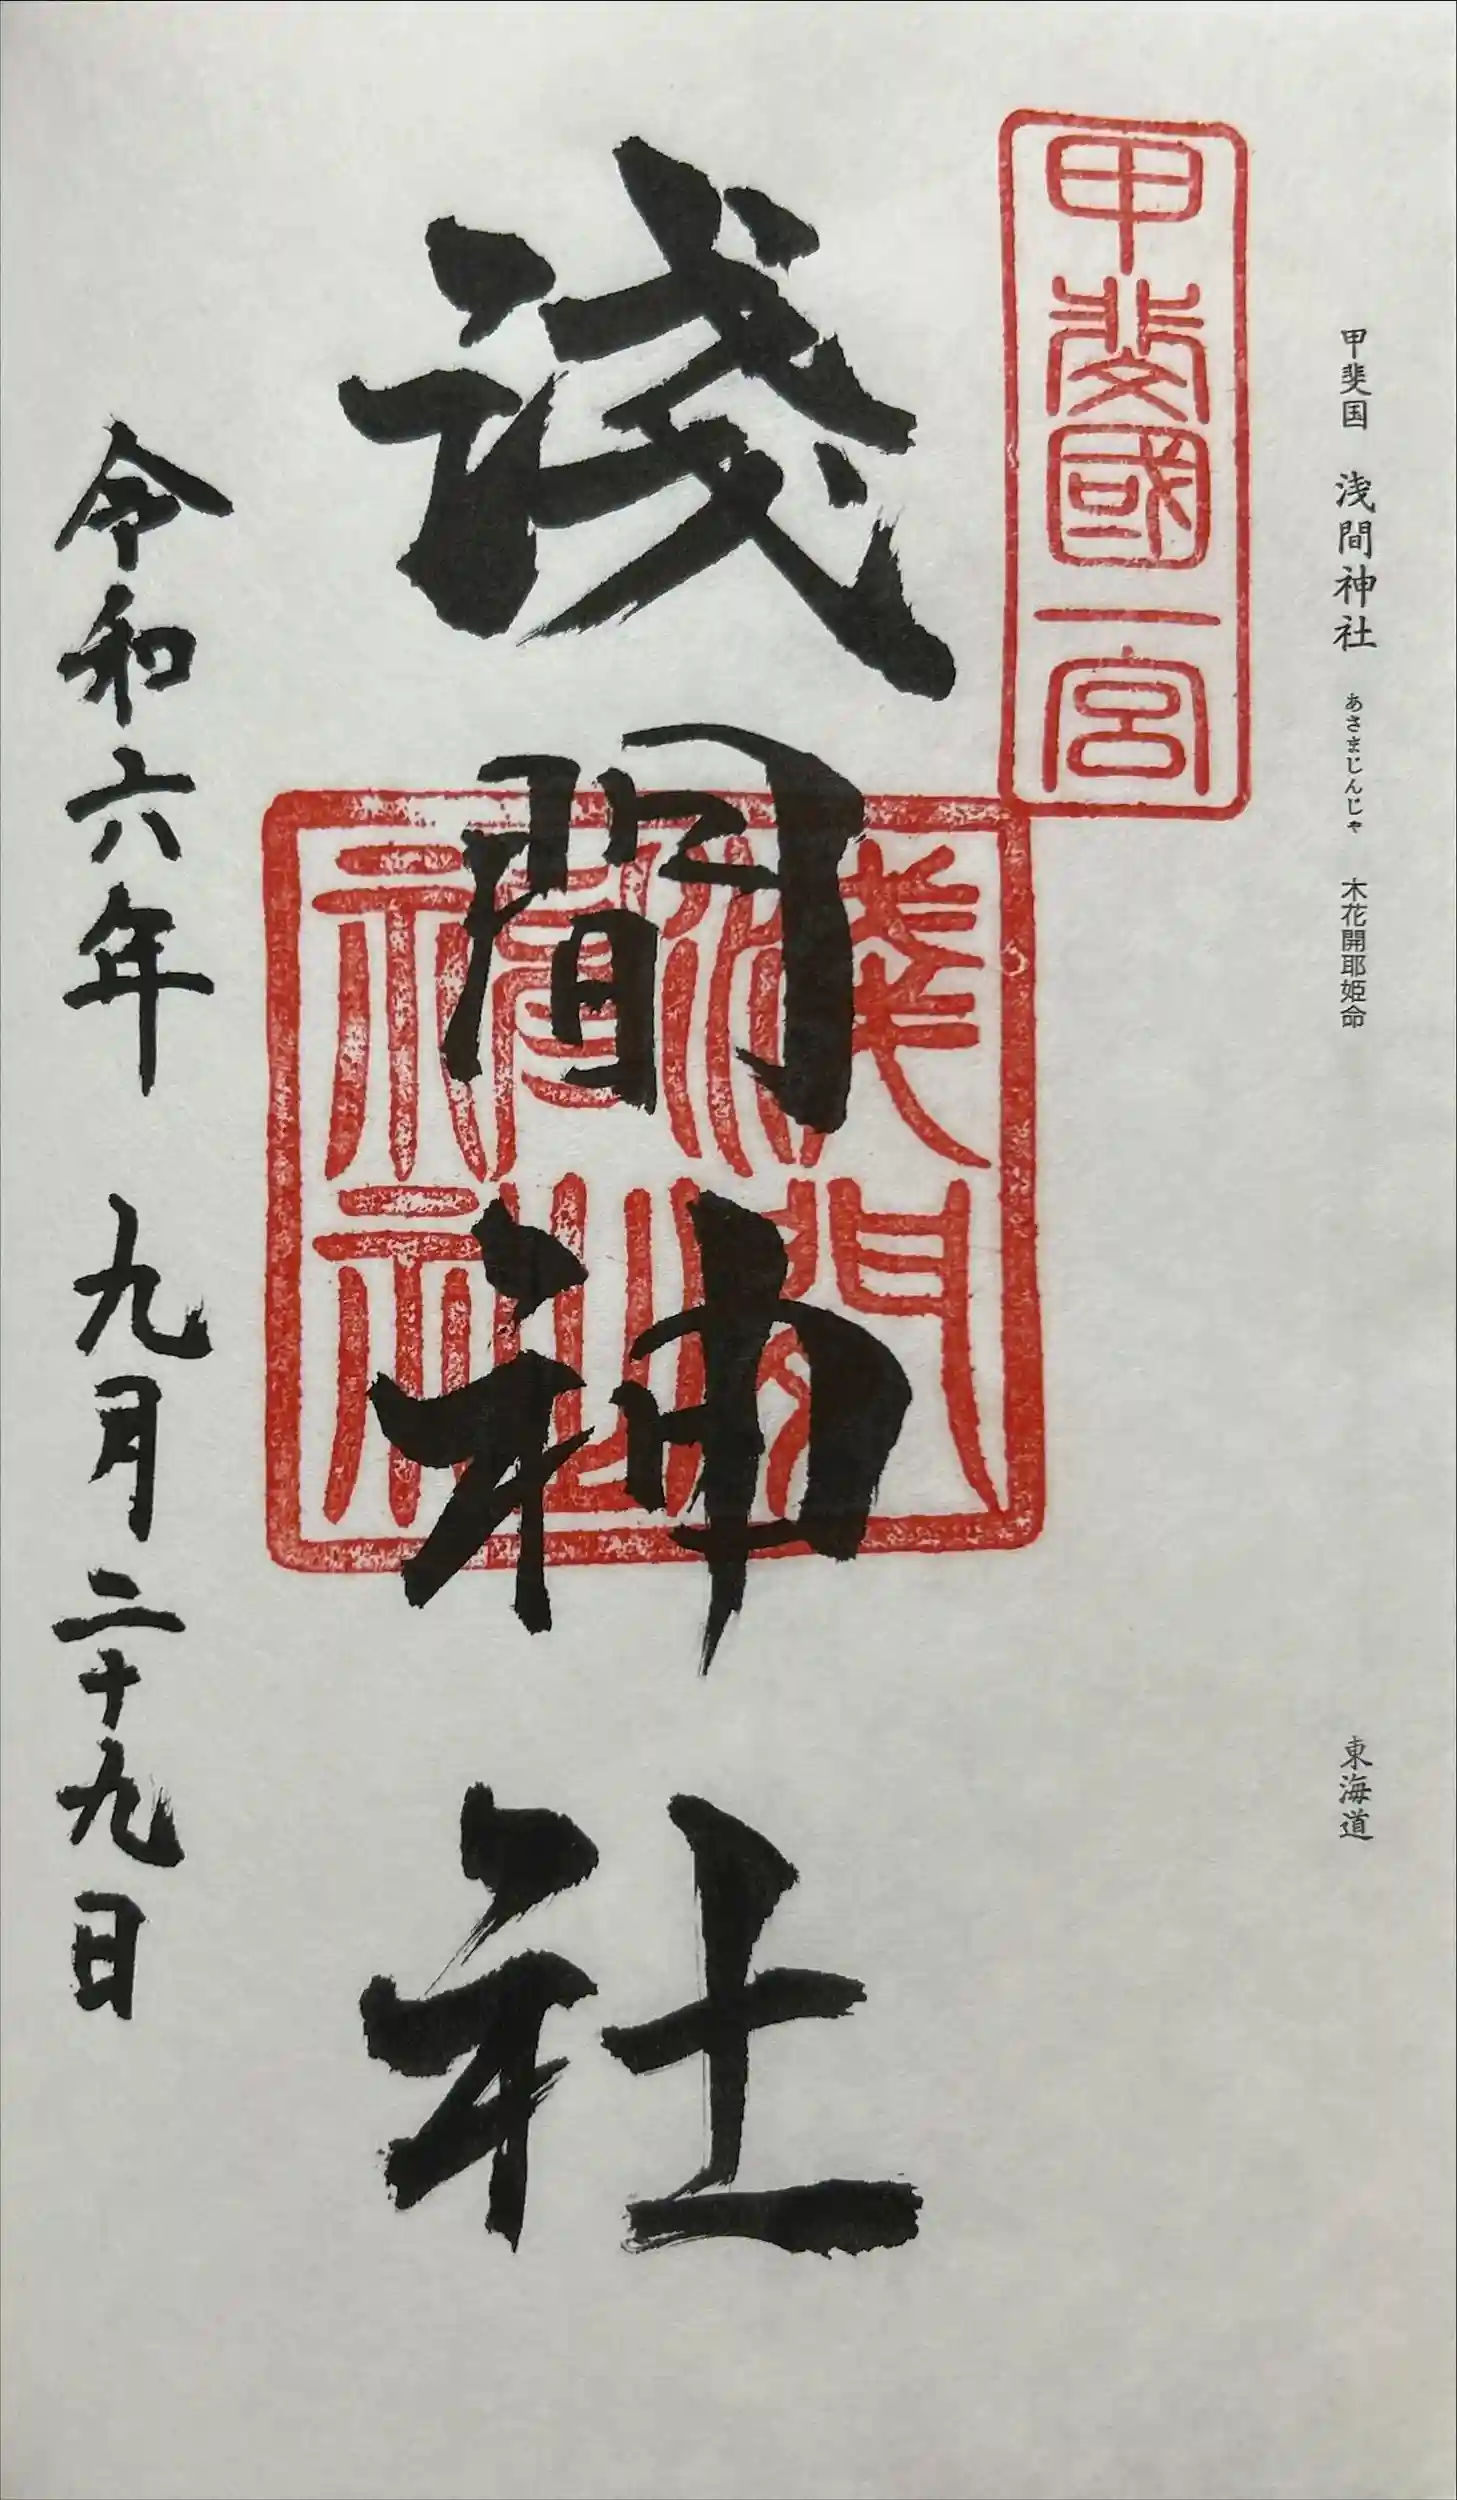 甲斐国 浅間神社 あさまじんじゃ 木花開耶姫命 東海道
甲斐國一宮
浅間神社
淺間神社
令和六年 九月二十九日